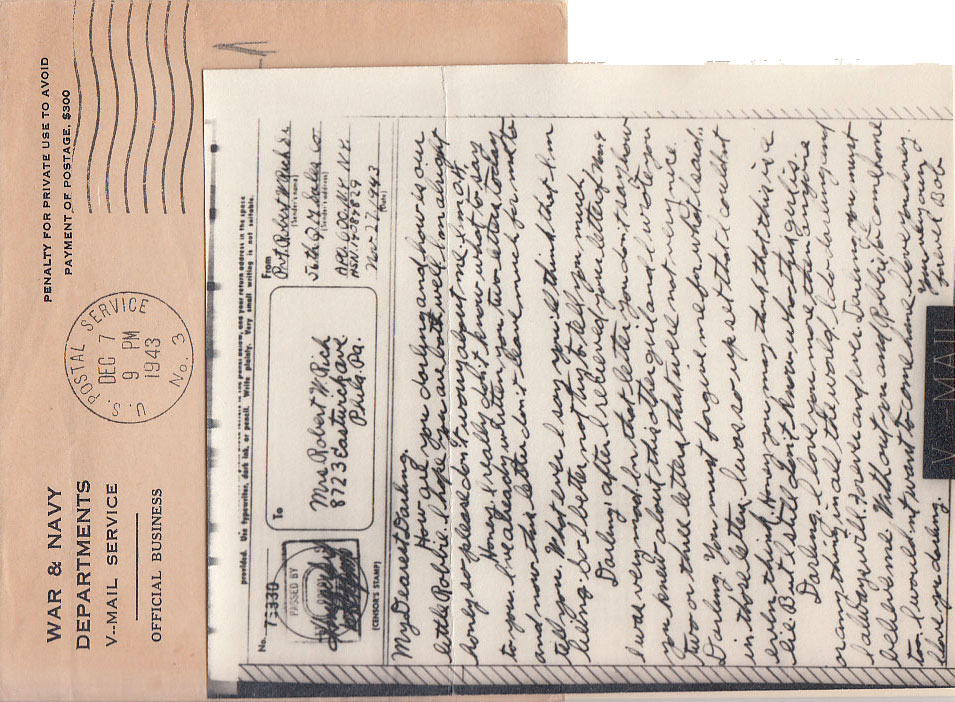 WAR & NAVY
DEPARTMENTS
V--MAIL SERVICE
OFFICIAL BUSINESS
U.S. POSTAL SERVICE
DEC 7
9 PM
1943
No. 3
PENALTY FOR PRIVATE USE TO AVOID
PAYMENT OF POSTAGE, $300
provided. Use typewriter, dark ink, or pencil. Write plainly. Very small writing is not suitable.
No. 75330
PASSED BY
(CENSOR'S STAMP)
To
Mrs Robert W. Rich
8723 Eastwick ave
Phila, Pa.
From
Pvt. Robert W. Rich
(Sender's name)
(Sender's address)
Nov-27-1943
(Date)
My Dearest Darling,
How are you darling and how is our
little Robbie. I hope you are both well & on alright
honey so please don't worry about me. I'm all
Honey, I really don't know what to say
to you. I've already written you two letters today
and now this letter don't leave much for me to
tell you. What ever I say you'll think that I'm
lieing. So I better not try to tell you much.
Darling, after I recieved your letter of Nov 4
I was very mad, for that letter you don't say how
you knew about this other girl and I wrote you
two or three letters that were not very nice.
Darling, You must forgive me for what I said
in those letters, I was so up set that I couldn't
even think. Honey you may think that this is a
lie. But I still don't know who that girl is.
Darling, I love you more then anyone
or anything in all the world, I do darling and
I always will. Forever and ever Dear, you must
believe me. Without you and Robbie to come home
too I would not want to come home. I love you honey
I love you darling
Your loving
forever Bob
V--MAIL